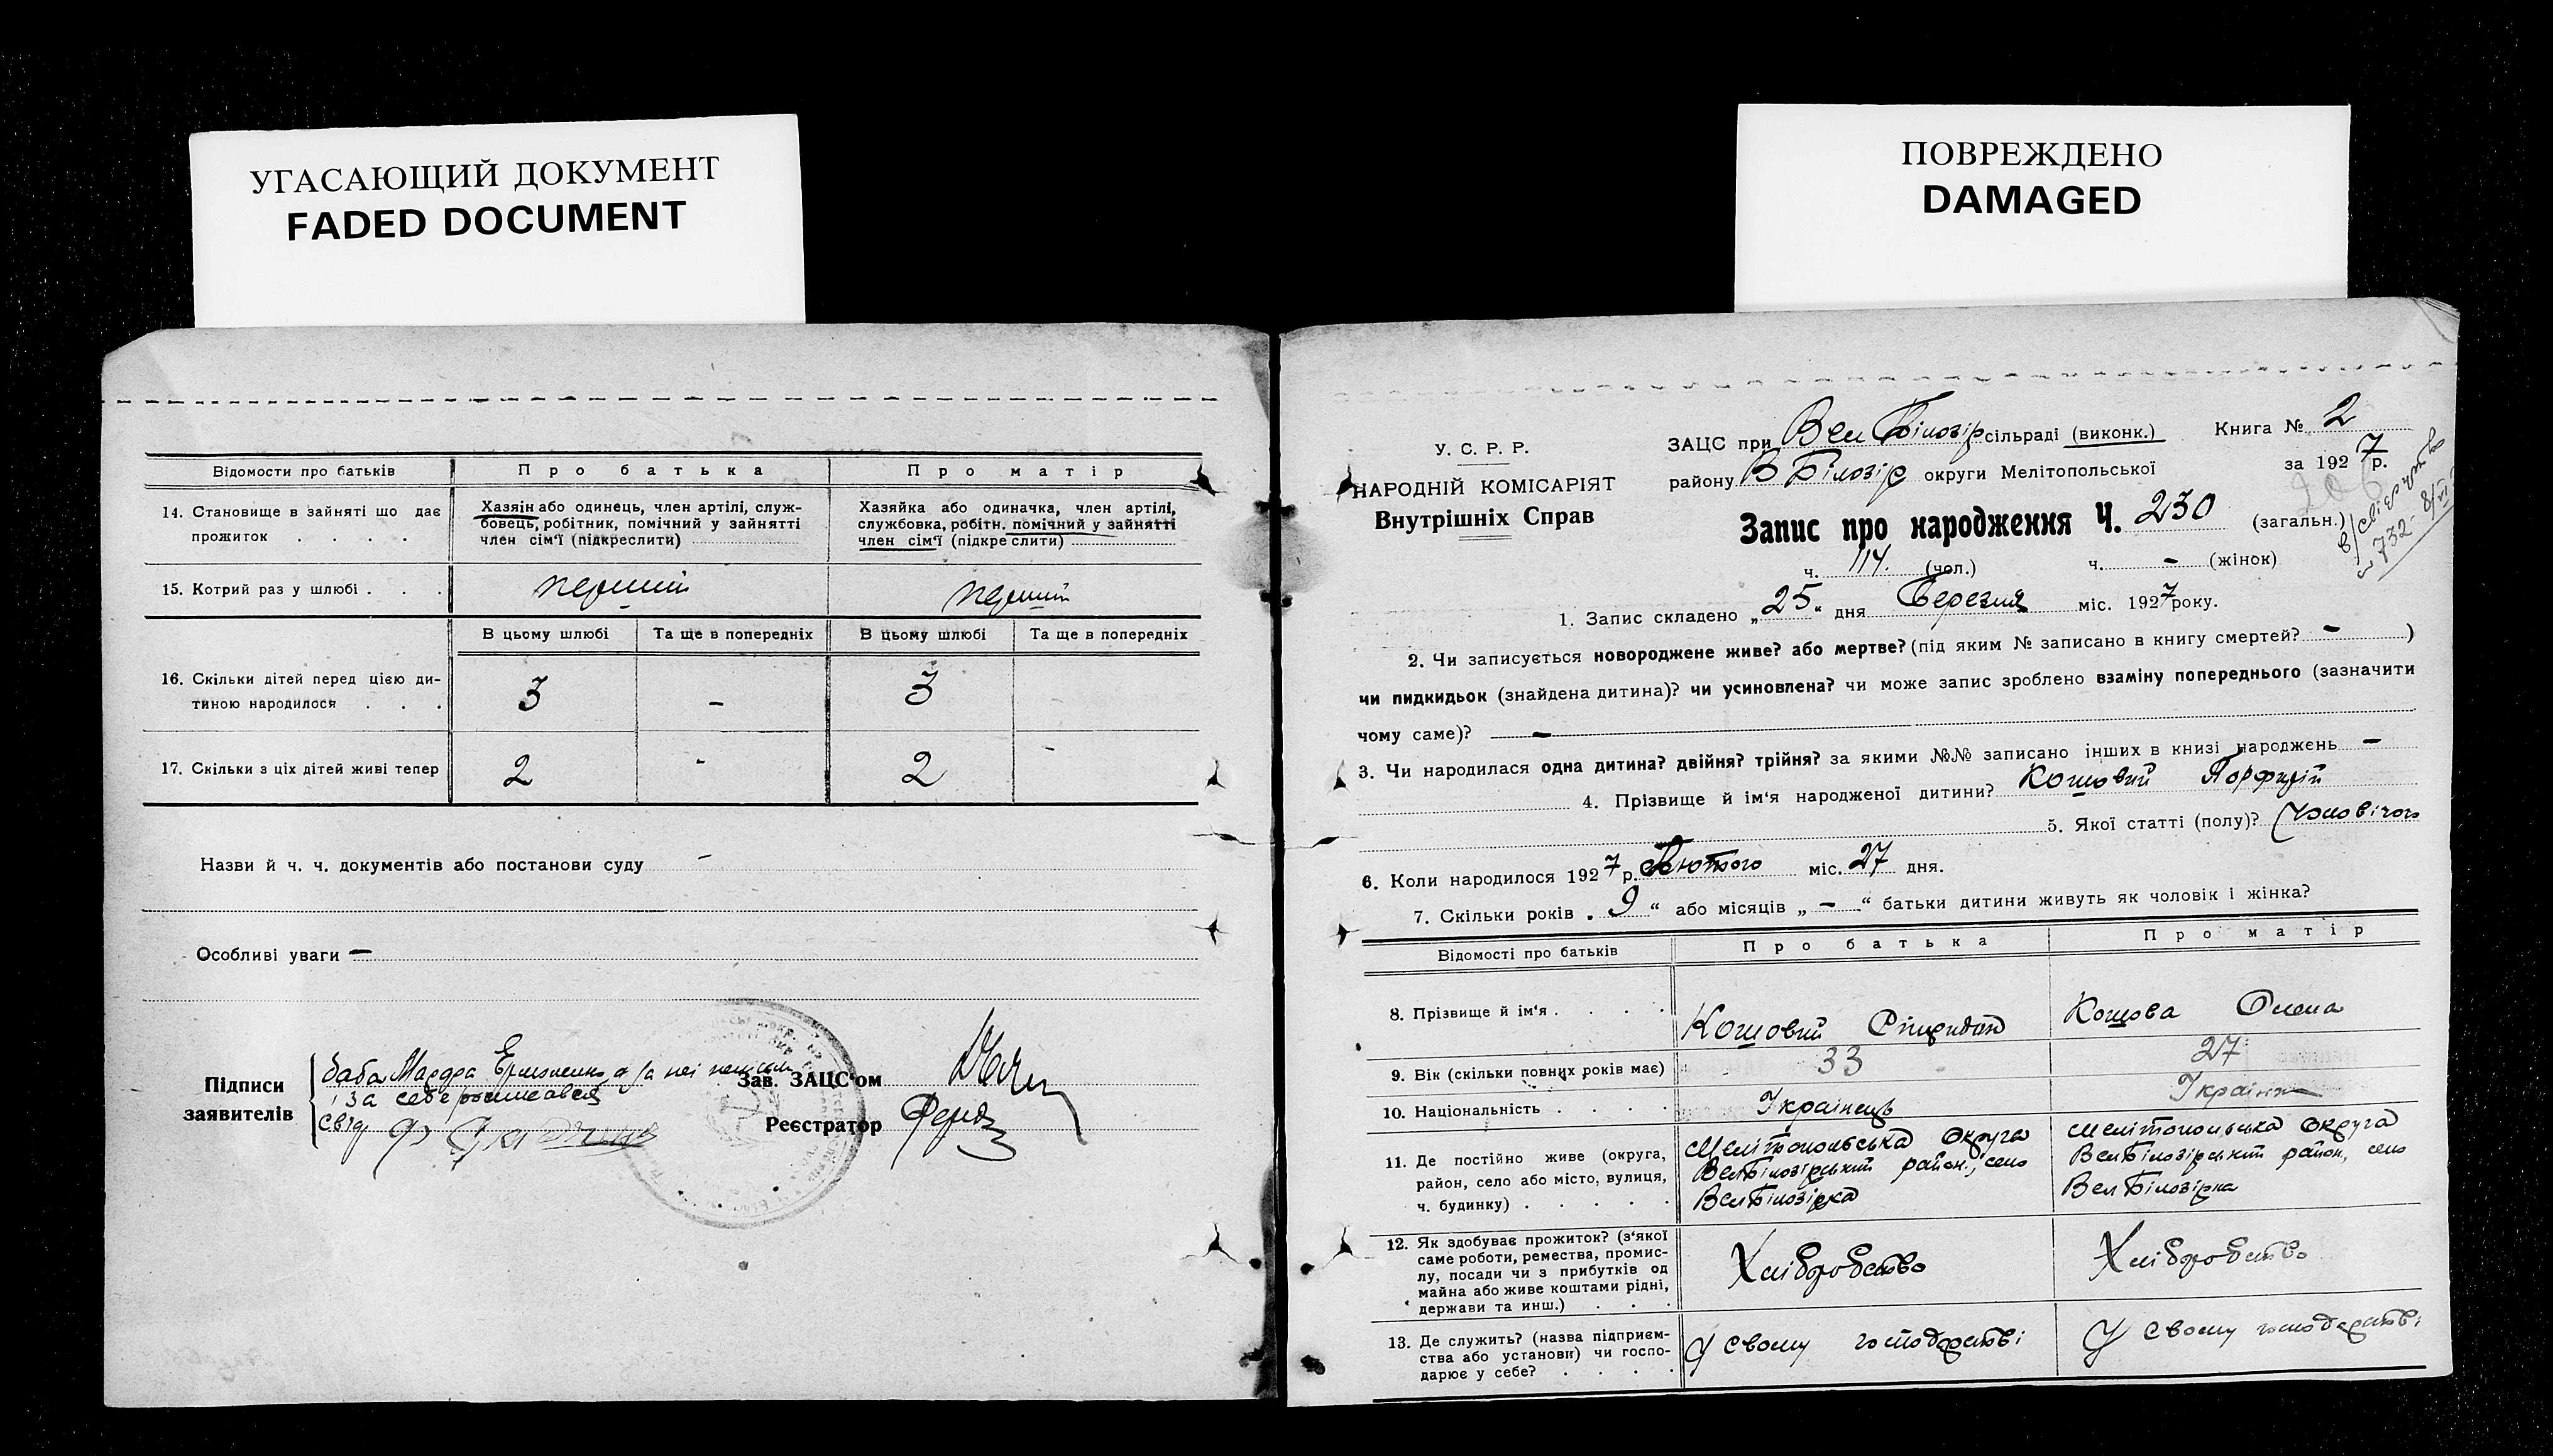 УГАСАЮЩИЙ ДОКУМЕНТ
FADED DOCUMENT
ПОВРЕЖДЕНО
DAMAGED
Відомости про батьків
Про батька
Про матір
14. Становище в зайняті що дає
прожиток . . . .
Хазяін або одинець, член артілі, служ-
бовець, робітник, помічний у зайнятті
член сім'ї (підкреслити)
Хазяйка або одиначка, член артілі,
службовка, робітн. помічний у зайнятті
член сім'ї (підкреслити)
15. Котрий раз у шлюбі . . .
перший
перший
В цьому шлюбі
Та ще в попередніх
В цьому шлюбі
Та ще в попередніх
16. Скільки дітей перед цією ди-
тиною народилося . . .
3
-
3
17. Скільки з ціх дітей живі тепер
2
-
2
-
Назви й ч. ч. документів або постанови суду -
Особливі уваги —
Підписи
заявителів
баба Мавра а за неі
і за себе росписався
свід
Зав. ЗАЦС'ом
Реєстратор
У. С. Р. Р.
НАРОДНІЙ КОМІСАРІЯТ
Внутрішніх Справ
ЗАЦС при Вел Білозір сільраді (виконк.)
Книга № 2
району В Білозір округи Мелітопольської
за 1927 р.
206
732
Запис про народження Ч. 230 (загальн.)
ч. 114. (чол.) ч. - (жінок)
1. Запис складено „25“ дня Березня міс. 1927 року.
2. Чи записується новороджене живе? або мертве? (під яким № записано в книгу смертей? - )
чи пидкидьок (знайдена дитина)? чи усиновлена? чи може запис зроблено взаміну попереднього (зазначити
чому саме)? —
3. Чи народилася одна дитина? двійня? трійня? за якими №№ записано інших в книзі народжень —
4. Прізвище й ім'я народженої дитини? Кошовий Порфирій
5. Якої статті (полу)? Чоловічого
6. Коли народилося 1927 р. Лютого міс. 27 дня.
7. Скільки років „9“ або місяців „—“ батьки дитини живуть як чоловік і жінка?
Відомості про батьків
Про батька
Про матір
8. Прізвище й ім'я . . . .
Кошовий Спиридон
Кошова Олена
9. Вік (скільки повних років має)
33
27
10. Національність . . . .
Українець
Українка
11. Де постійно живе (округа,
район, село або місто, вулиця,
ч. будинку) . . . . .
Мелітопольська округа
ВелБілозірський район, село
ВелБілозірка
Мелітопольська округа
ВелБілозірський район, село
ВелБілозірка
12. Як здобуває прожиток? (з'якої
саме роботи, ремества, промис-
лу, посади чи з прибутків од
майна або живе коштами рідні,
держави та инш.) . . .
Хліборобство
Хліборобство
13. Де служить? (назва підприєм-
ства або установи) чи госпо-
дарює у себе? . . . .
У своєму господарстві
У своєму господарстві